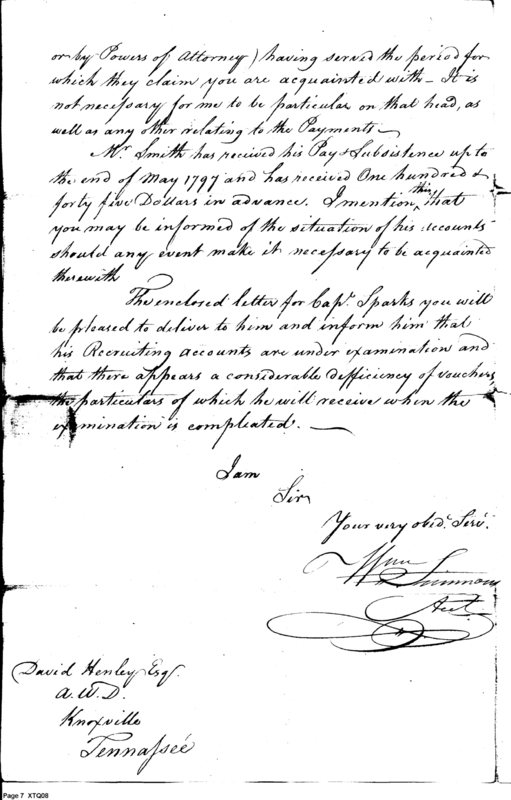 or by Powers of Attorney) having served the period for
which they claim you are acquainted with – It is
not necessary for me to be particular on that head, as
well as any other relating to the Payments –
Mr. Smith has received his Pay & Subsistence up to
the end of May 1797 and has received One hundred &
forty five Dollars in advance. I mention this, that
you may be informed of the situation of his accounts
should any event make it necessary to be acquainted
therewith
The enclosed letter for Capt. Sparks you will
be pleased to deliver to him and inform him that
his Recruiting accounts are under examination and
that there appears a considerable defficiency of vouchers
the particulars of which he will receive when the
examination is compleated. –
I am
Sir
Your very obedt. Servt.
Wm Simmons
Acct
David Henley Esqr.
A.W.D.
Knoxville
Tennassée
Page 7 XTQ08